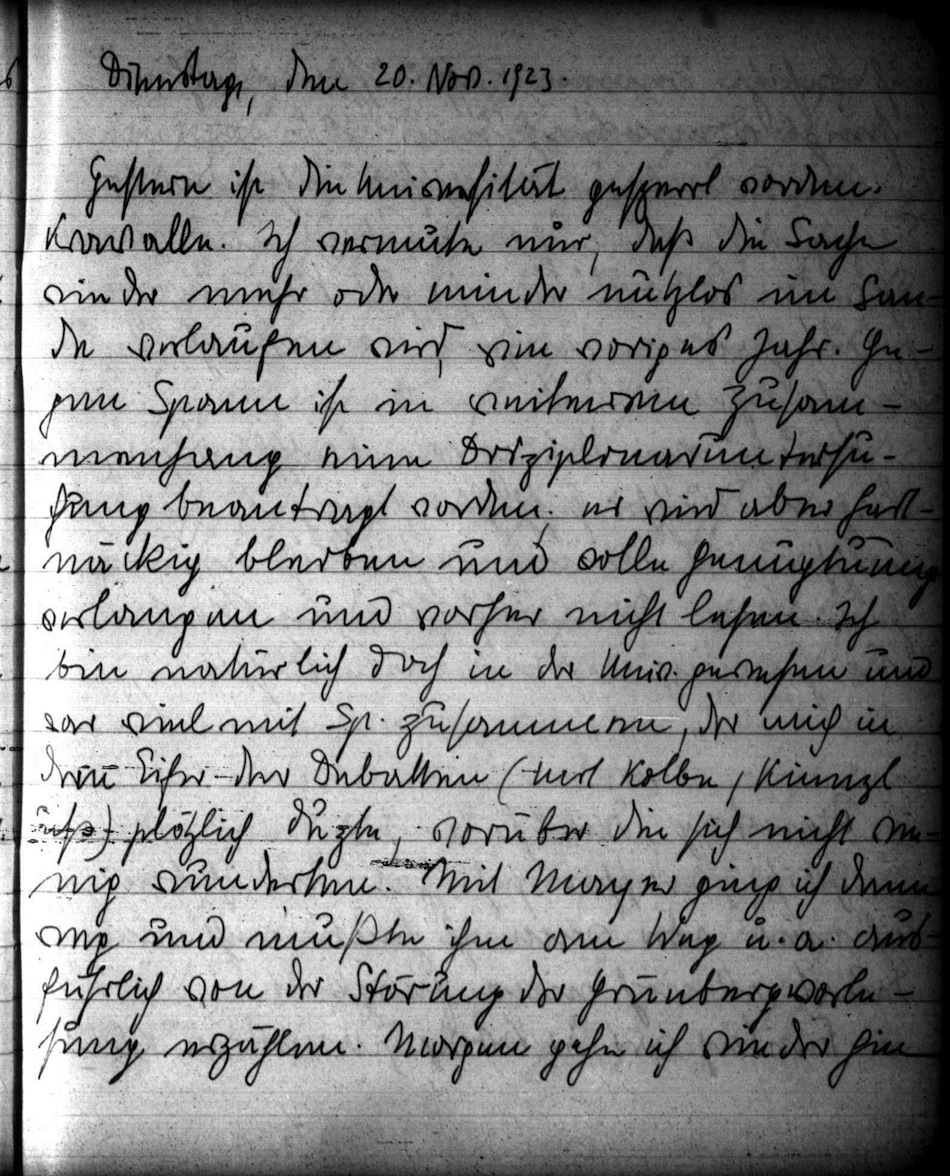 Dienstag, den 20. Nov. 1923.
Gestern ist die Universität gesperrt worden.
Krawalle. Ich vermute nur, daß die Sache
wieder mehr oder minder nutzlos im San-
de verlaufen wird, wie voriges Jahr. Ge-
gen Spann ist in weiterem Zusam-
menhang eine Disziplinaruntersu-
chung beantragt worden; er wird aber hart-
näckig bleiben und volle Genugtuung
verlangen und vorher nicht lesen. Ich
bin natürlich doch in der Univ. gewesen und
war viel mit Sp. zusammen, der mich in
dem Eifer der Debatten (mit Kolbe, Kienzl
usf.) plötzlich duzte, worüber die sich nicht we-
nig wunderten. Mit Mayer ging ich dann
weg und mußte ihm am Weg u. a. aus-
führlich von der Störung der Grünbergvorle-
sung erzählen. Morgen gehe ich wieder hin